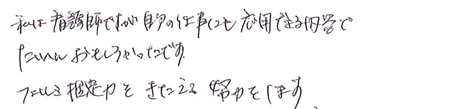 私は看護師ですが自分の仕事にも応用できる内容で
たいへんおもしろかったです。
フェルミ推定力をきたえる努力をします。